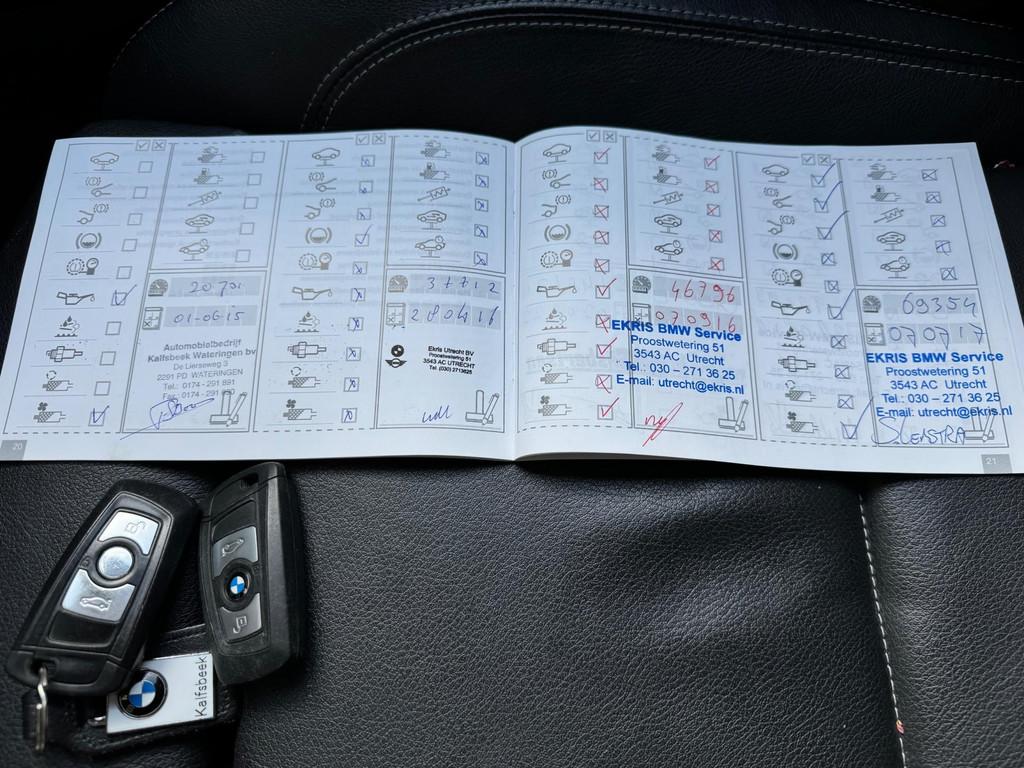 20701
01-06-15
Automobielbedrijf
Kalfsbeek Wateringen bv
De Lierseweg 3
2291 PD WATERINGEN
Tel.: 0174 - 291 891
37712
280416
Ekris Utrecht BV
Proostwetering 51
3543 AC UTRECHT
Tel. (030) 2713625
46796
070916
EKRIS BMW Service
Proostwetering 51
3543 AC Utrecht
Tel.: 030 - 271 36 25
E-mail: utrecht@ekris.nl
69354
070717
EKRIS BMW Service
Proostwetering 51
3543 AC Utrecht
Tel.: 030 - 271 36 25
E-mail: utrecht@ekris.nl
20
21
BMW
BMW
Kalfsbeek